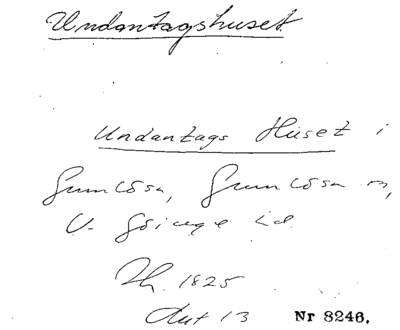 Undantagshuset
Undantags Huset i
Gumlösa, Gumlösa sn,
V. Göinge hd
1825
13 Nr 8246.